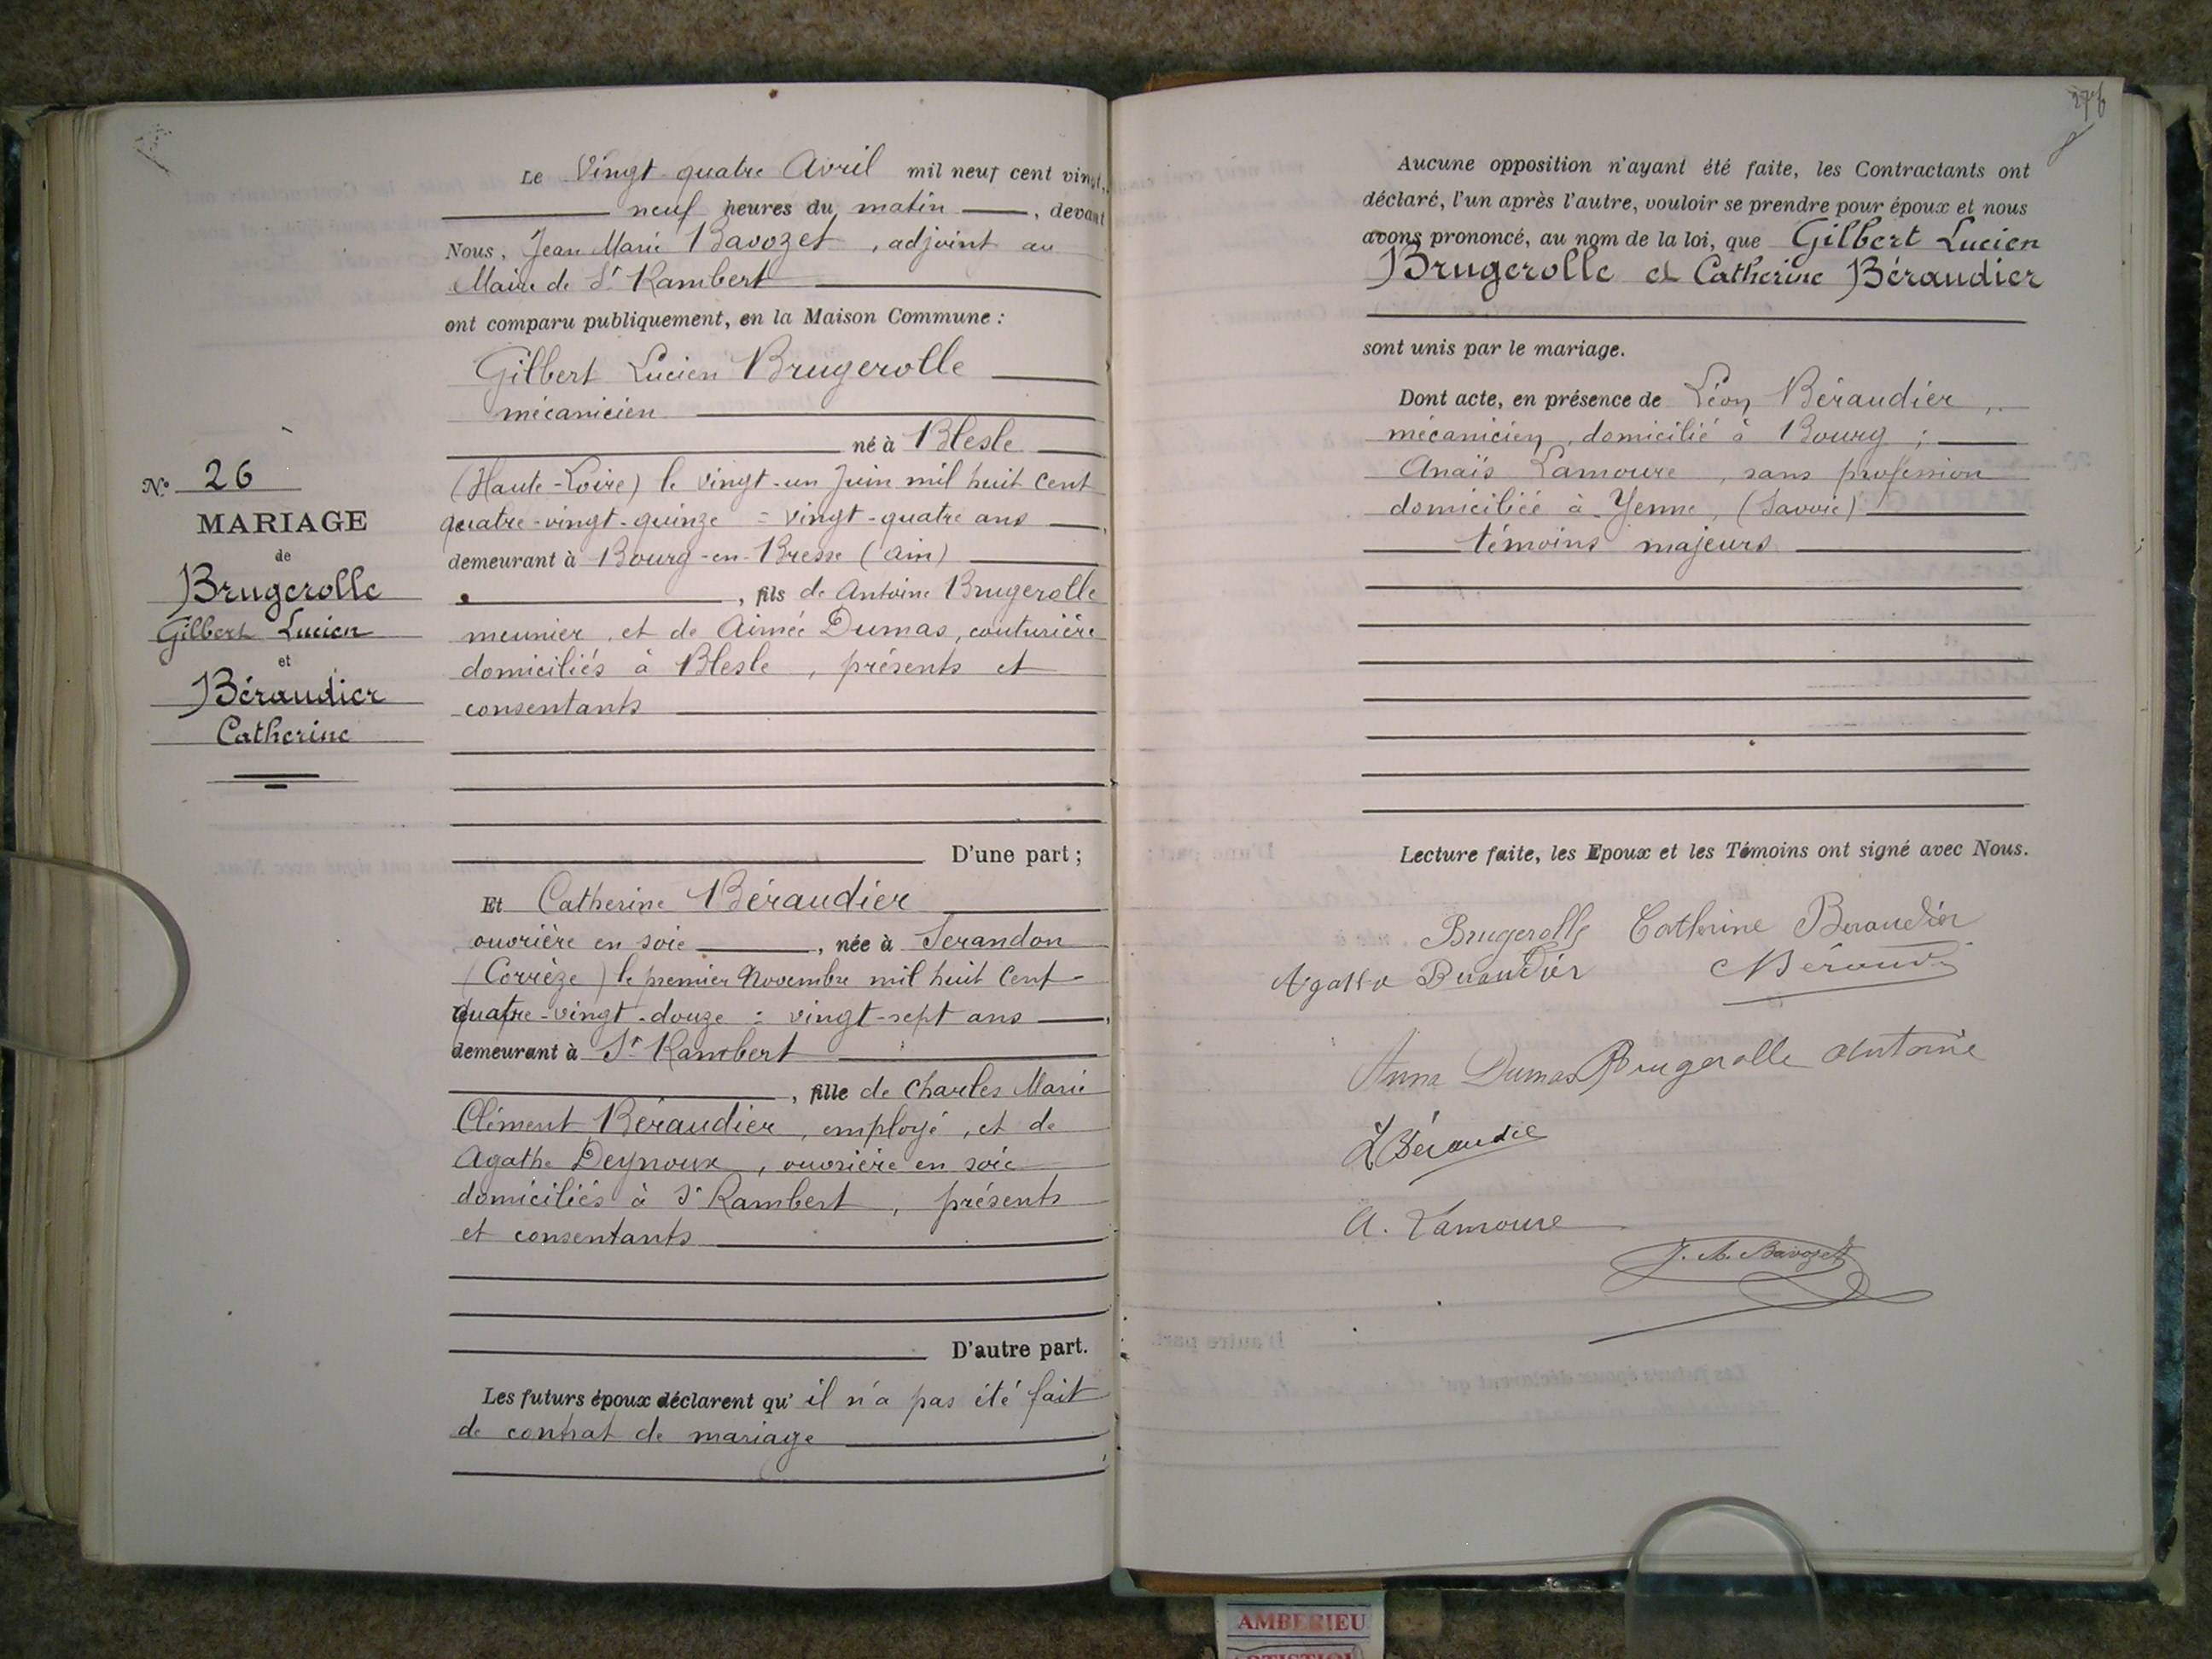 Le Vingt quatre Avril mil neuf cent vingt,
neuf heures du matin, devant
Nous, Jean Marie Bavozet, adjoint au
Maire de St Rambert
ont comparu publiquement, en la Maison Commune :
Gilbert Lucien Brugerolle
mécanicien
né à Blesle
(Haute-Loire) le vingt-un Juin mil huit cent
quatre-vingt-quinze = vingt-quatre ans,
demeurant à Bourg-en-Bresse (Ain)
, fils de Antoine Brugerolle
meunier, et de Aimée Dumas, couturière
domiciliés à Blesle, présents et
consentants
D'une part ;
Et Catherine Béraudier
ouvrière en soie, née à Serandon
(Corrèze) le premier Novembre mil huit cent
quatre-vingt-douze = vingt-sept ans,
demeurant à St Rambert
, fille de Charles Marie
Clément Béraudier, employé, et de
Agathe Deynoux, ouvrière en soie
domiciliés à St Rambert, présents
et consentants
D'autre part.
Les futurs époux déclarent qu' il n'a pas été fait
de contrat de mariage
No 26
MARIAGE
de
Brugerolle
Gilbert Lucien
et
Béraudier
Catherine
Aucune opposition n'ayant été faite, les Contractants ont
déclaré, l'un après l'autre, vouloir se prendre pour époux et nous
avons prononcé, au nom de la loi, que Gilbert Lucien
Brugerolle et Catherine Béraudier
sont unis par le mariage.
Dont acte, en présence de Léon Béraudier,
mécanicien, domicilié à Bourg ;
Anaïs Lamoure, sans profession
domiciliée à Yenne, (Savoie)
témoins majeurs
Lecture faite, les Epoux et les Témoins ont signé avec Nous.
Brugerolle Catherine Beraudier
Béraudier
Anna Dumas Brugerolle Antoine
L Béraudie
A. Lamoure
J. M. Bavozet
AMBERIEU